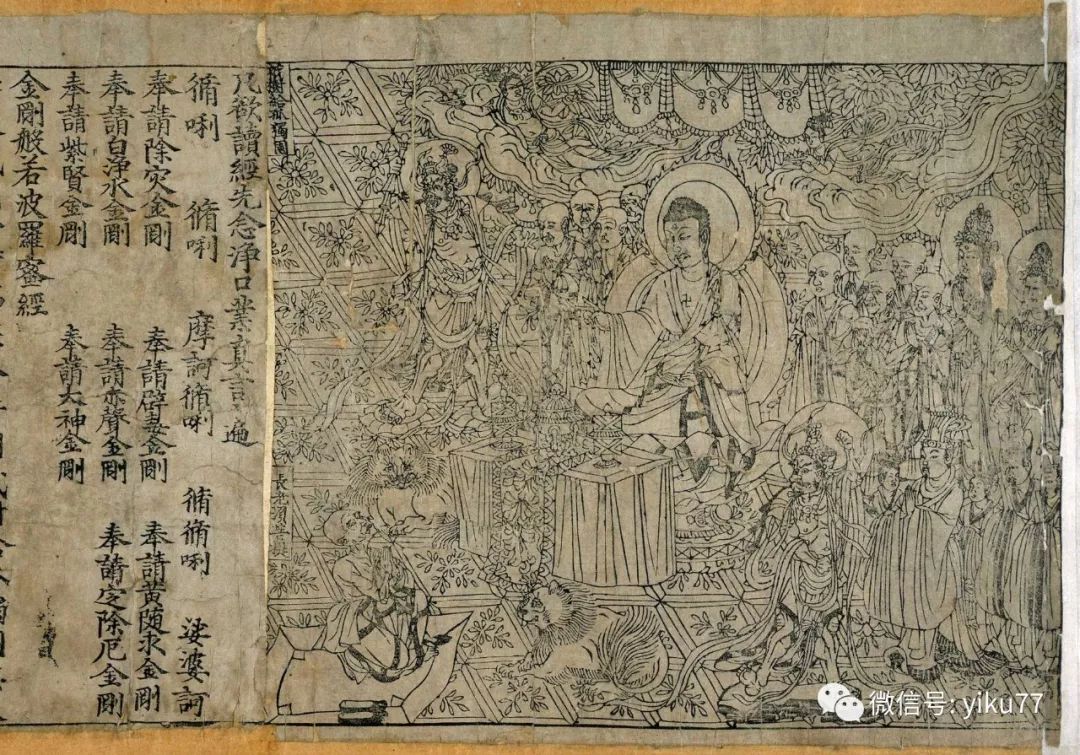 祇樹給孤獨園
長老須菩提
凡欲讀經先念淨口業真言遍
脩唎 脩唎 摩訶脩唎 脩脩唎 娑婆訶
奉請除灾金剛 奉請辟毒金剛 奉請黄随求金剛
奉請白淨水金剛 奉請赤聲金剛 奉請定除厄金剛
奉請紫賢金剛 奉請大神金剛
金剛般若波羅蜜經
微信号: yiku77